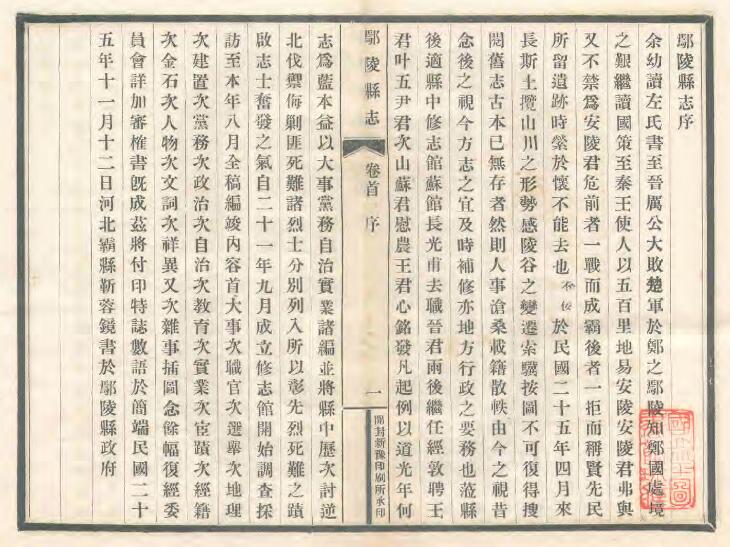 鄢陵縣志序
余幼讀左氏書至晉厲公大敗楚軍於鄭之鄢陵知鄭國處境
之艱繼讀國策至秦王使人以五百里地易安陵安陵君弗與
又不禁爲安陵君危前者一戰而成霸後者一拒而稱賢先民
所留遺跡時縈於懷不能去也不佞於民國二十五年四月來
長斯土攬山川之形勢感陵谷之變遷索驥按圖不可復得搜
閱舊志古本已無存者然則人事滄桑載籍散軼由今之視昔
念後之視今方志之宜及時補修亦地方行政之要務也蒞縣
後適縣中修志館蘇館長光甫去職晉君雨後繼任經敦聘王
君叶五尹君次山蘇君慰農王君心銘發凡起例以道光年何
鄢陵縣志
卷首 序
一
開封新豫印刷所承印
志爲藍本益以大事黨務自治實業諸編並將縣中歷次討逆
北伐禦侮剿匪死難諸烈士分別列入所以彰先烈死難之蹟
啟志士奮發之氣自二十一年九月成立修志館開始調查採
訪至本年八月全稿編竣內容首大事次職官次選舉次地理
次建置次黨務次政治次自治次教育次實業次宦蹟次經籍
次金石次人物次文詞次祥異又次雜事插圖念餘幅復經委
員會詳加審榷書旣成茲將付印特誌數語於簡端民國二十
五年十一月十二日河北霸縣靳蓉鏡書於鄢陵縣政府